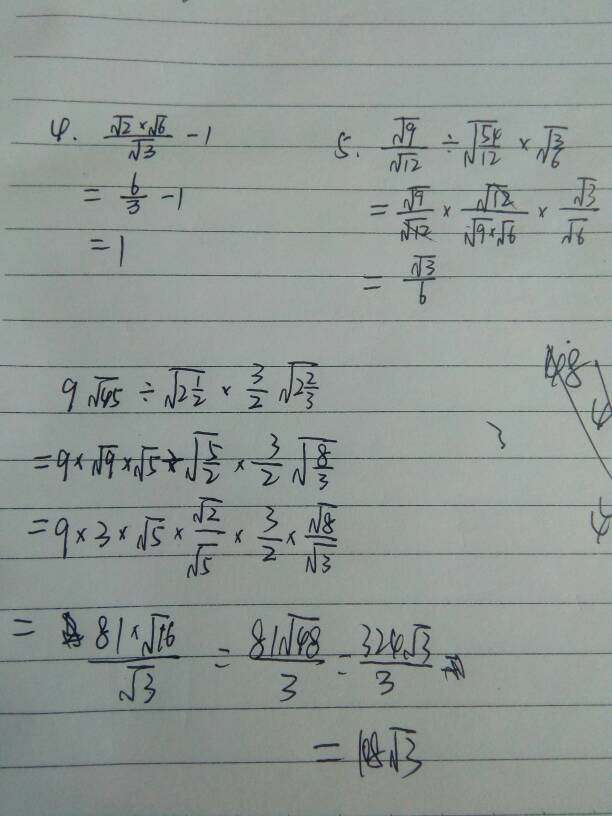 4. \frac{\sqrt{2}×\sqrt{6}}{\sqrt{3}} - 1
= \frac{6}{3} - 1
= 1
5. \frac{\sqrt{9}}{\sqrt{12}} ÷ \sqrt{\frac{54}{12}} × \sqrt{\frac{3}{6}}
= \frac{\sqrt{9}}{\sqrt{12}} × \frac{\sqrt{12}}{\sqrt{9}×\sqrt{6}} × \frac{\sqrt{3}}{\sqrt{6}}
= \frac{\sqrt{3}}{6}
9\sqrt{45} ÷ \sqrt{2\frac{1}{2}} × \frac{3}{2}\sqrt{2\frac{2}{3}}
= 9×\sqrt{9}×\sqrt{5} ÷ \sqrt{\frac{5}{2}} × \frac{3}{2}\sqrt{\frac{8}{3}}
3
= 9×3×\sqrt{5}×\frac{\sqrt{2}}{\sqrt{5}}×\frac{3}{2}×\frac{\sqrt{8}}{\sqrt{3}}
= \frac{81×\sqrt{16}}{\sqrt{3}} = \frac{81\sqrt{48}}{3} = \frac{324\sqrt{3}}{3}
= 108\sqrt{3}